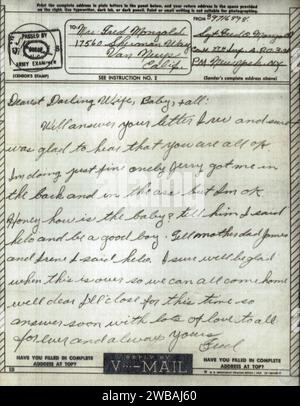 Print the complete address in plain letters in the panel below, and your return address in the space provided
on the right. Use typewriter, dark ink, or dark pencil. Faint or small writing is not suitable for photographing.
PASSED BY
ARMY EXAMINER
(CENSOR'S STAMP)
To: Mrs Fred Mongold
17560 Sherman Way
Van Nuys
Calif.
From
Sgt Fred Mongold
N.Y.
SEE INSTRUCTION NO. 2
(Sender's complete address above)
Dearest Darling Wife, Baby & all:
Will answer your letter I rec and sure
was glad to hear that you are all ok
Im doing just fine only Jerry got me in
the back and in the ase but Im ok
Honey how is the baby? tell him I said
helo and be a good boy. Tell mother dad James
and Irene I said helo. I sure will be glad
when this is over so we can all come home
well dear I'll close for this time so
answer soon with lots of love to all
for ever and always yours
Fred
HAVE YOU FILLED IN COMPLETE
ADDRESS AT TOP?
REPLY BY
V···-MAIL
HAVE YOU FILLED IN COMPLETE
ADDRESS AT TOP?
alamy
Image ID: 2WBAJ60
www.alamy.com